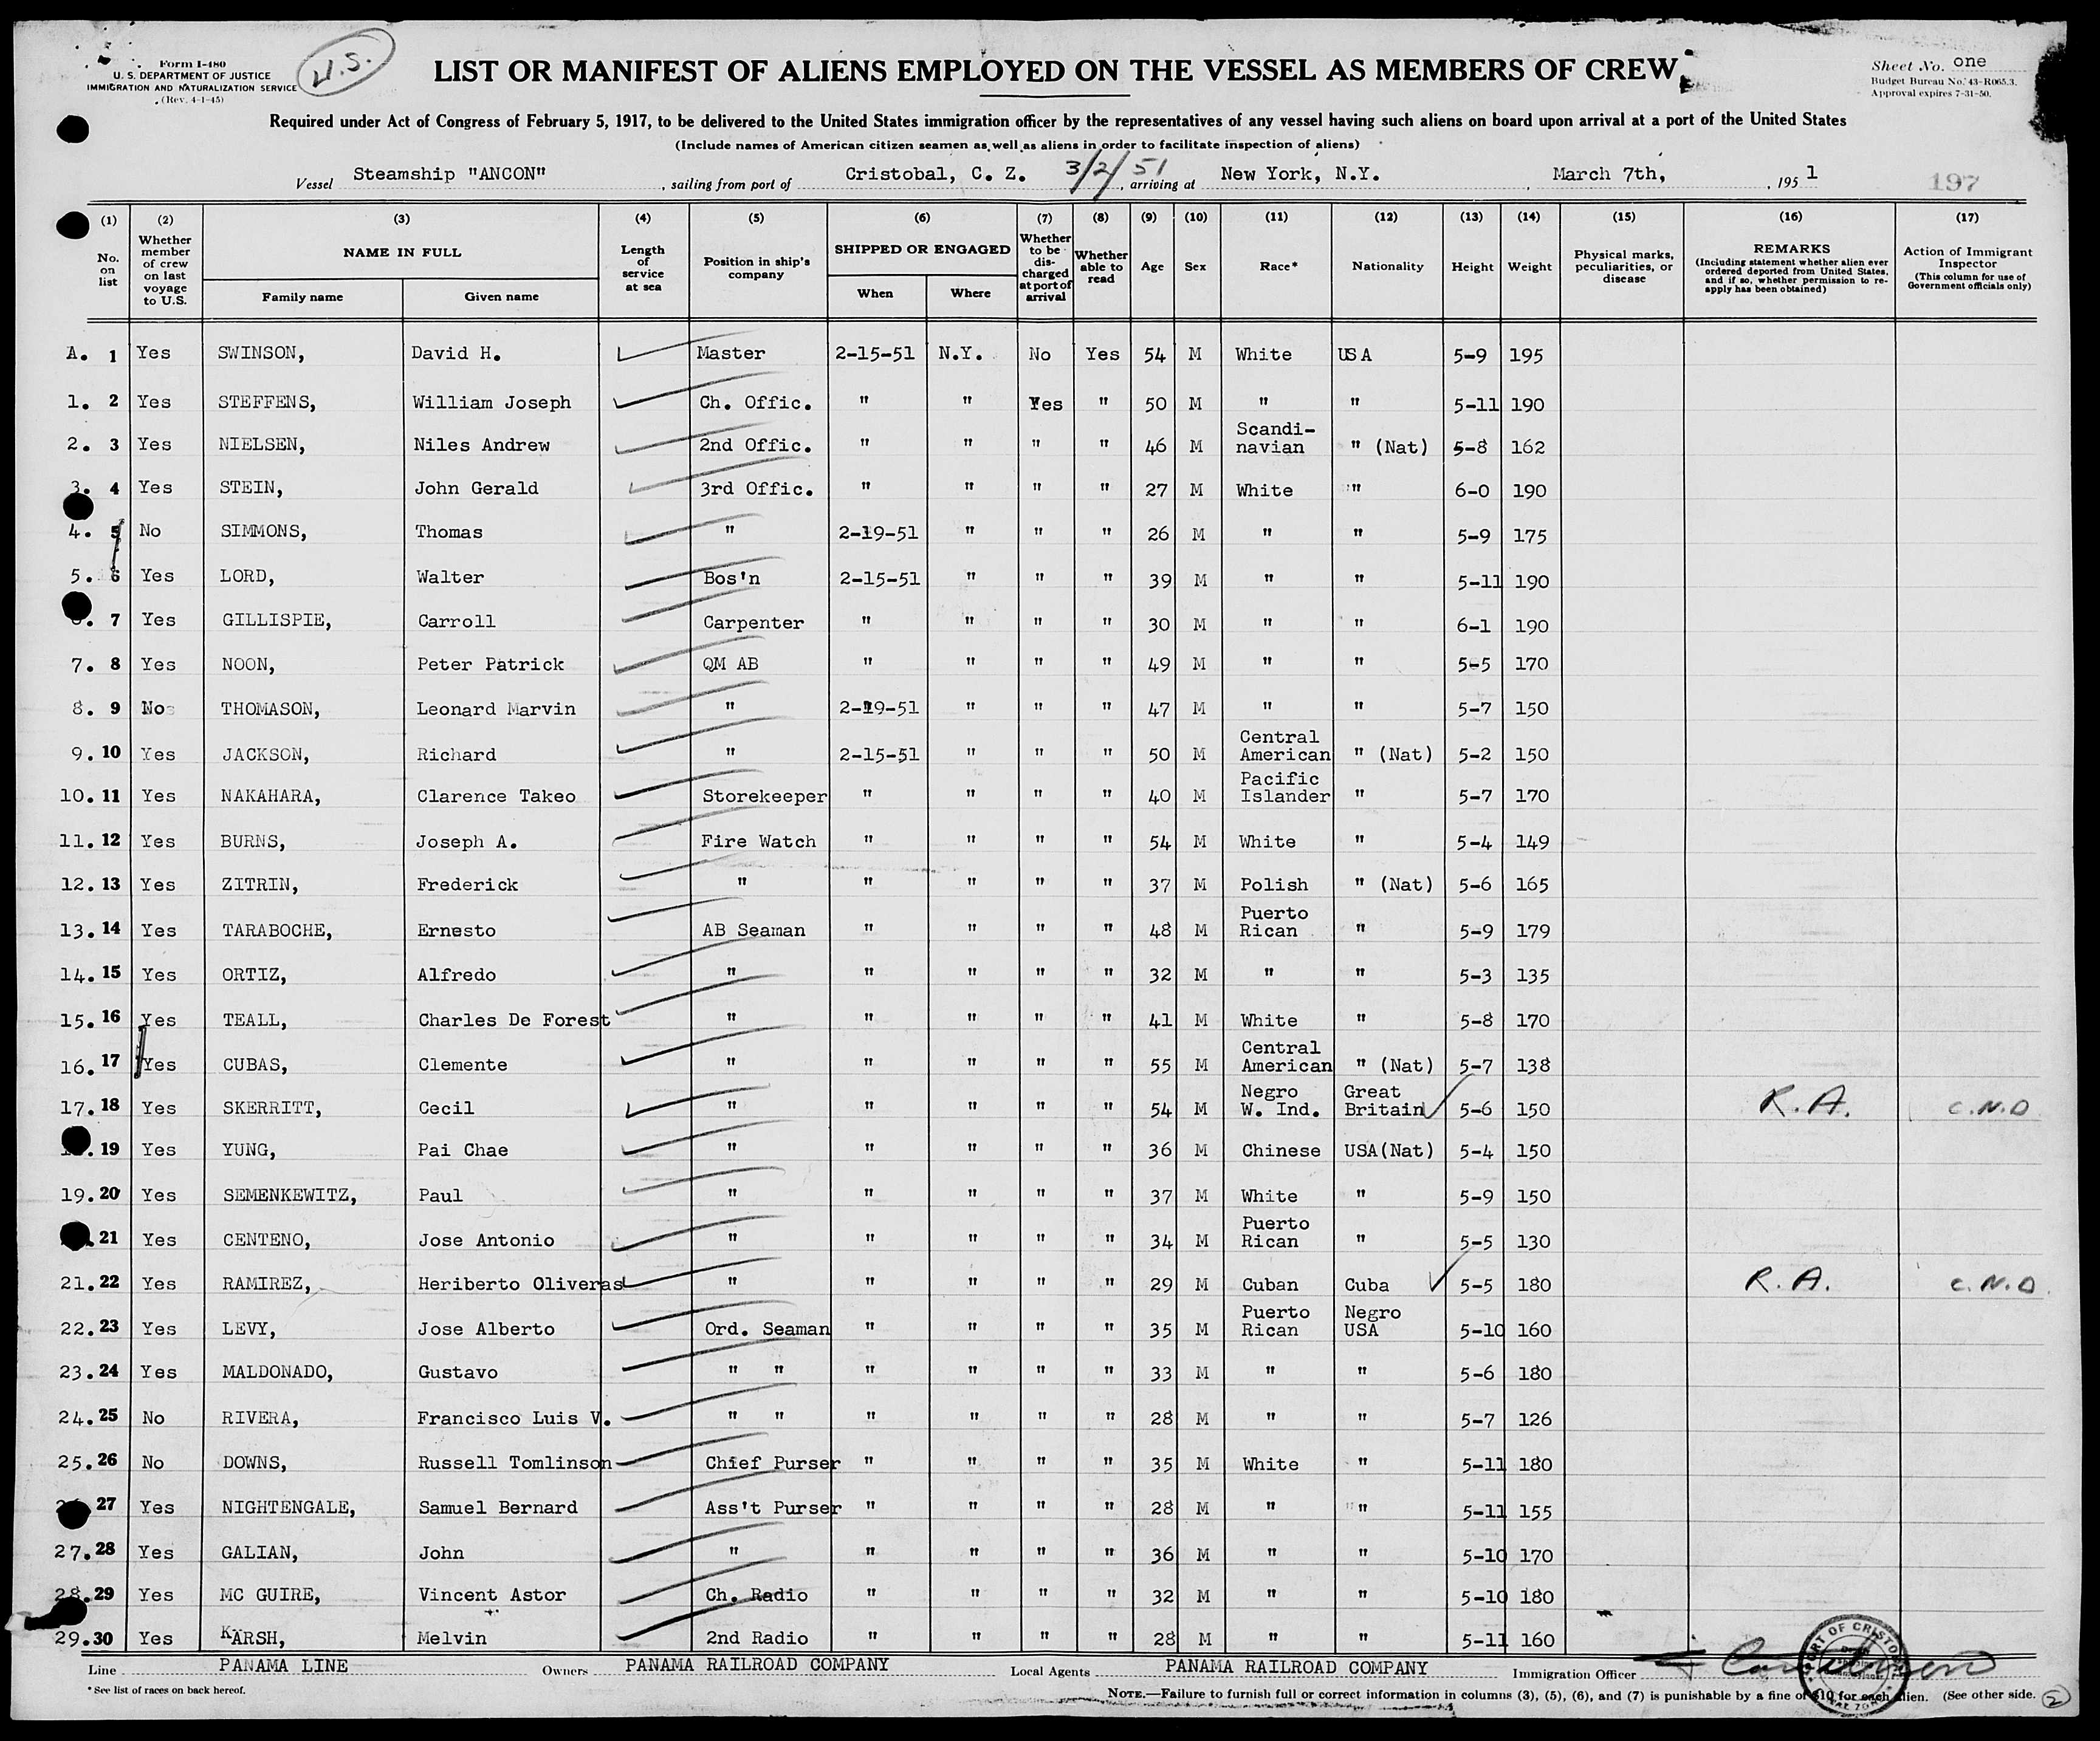 Form I-480
U. S. DEPARTMENT OF JUSTICE
IMMIGRATION AND NATURALIZATION SERVICE
(Rev. 4-1-45)
U.S.
LIST OR MANIFEST OF ALIENS EMPLOYED ON THE VESSEL AS MEMBERS OF CREW
Sheet No. one
Budget Bureau No. 43-R065.3.
Approval expires 7-31-50.
Required under Act of Congress of February 5, 1917, to be delivered to the United States immigration officer by the representatives of any vessel having such aliens on board upon arrival at a port of the United States
(Include names of American citizen seamen as well as aliens in order to facilitate inspection of aliens)
Vessel Steamship "ANCON", sailing from port of Cristobal, C. Z. 3/2/51, arriving at New York, N.Y., March 7th, 1951
197
(1) No. on list
(2) Whether member of crew on last voyage to U.S.
(3) NAME IN FULL Family name Given name
(4) Length of service at sea
(5) Position in ship's company
(6) SHIPPED OR ENGAGED When Where
(7) Whether to be discharged at port of arrival
(8) Whether able to read
(9) Age
(10) Sex
(11) Race*
(12) Nationality
(13) Height
(14) Weight
(15) Physical marks, peculiarities, or disease
(16) REMARKS (Including statement whether alien ever ordered deported from United States, and if so, whether permission to re-apply has been obtained)
(17) Action of Immigrant Inspector (This column for use of Government officials only)
A. 1 Yes SWINSON, David H. Master 2-15-51 N.Y. No Yes 54 M White USA 5-9 195
1. 2 Yes STEFFENS, William Joseph Ch. Offic. " " Yes " 50 M " " 5-11 190
2. 3 Yes NIELSEN, Niles Andrew 2nd Offic. " " " " 46 M Scandi-navian " (Nat) 5-8 162
3. 4 Yes STEIN, John Gerald 3rd Offic. " " " " 27 M White " 6-0 190
4. 5 No SIMMONS, Thomas " 2-19-51 " " " 26 M " " 5-9 175
5. 6 Yes LORD, Walter Bos'n 2-15-51 " " " 39 M " " 5-11 190
7 Yes GILLISPIE, Carroll Carpenter " " " " 30 M " " 6-1 190
7. 8 Yes NOON, Peter Patrick QM AB " " " " 49 M " " 5-5 170
8. 9 No THOMASON, Leonard Marvin " 2-19-51 " " " 47 M " " 5-7 150
9. 10 Yes JACKSON, Richard " 2-15-51 " " " 50 M Central American " (Nat) 5-2 150
10. 11 Yes NAKAHARA, Clarence Takeo Storekeeper " " " " 40 M Pacific Islander " 5-7 170
11. 12 Yes BURNS, Joseph A. Fire Watch " " " " 54 M White " 5-4 149
12. 13 Yes ZITRIN, Frederick " " " " " 37 M Polish " (Nat) 5-6 165
13. 14 Yes TARABOCHE, Ernesto AB Seaman " " " " 48 M Puerto Rican " 5-9 179
14. 15 Yes ORTIZ, Alfredo " " " " " 32 M " " 5-3 135
15. 16 Yes TEALL, Charles De Forest " " " " " 41 M White " 5-8 170
16. 17 Yes CUBAS, Clemente " " " " " 55 M Central American " (Nat) 5-7 138
17. 18 Yes SKERRITT, Cecil " " " " " 54 M Negro W. Ind. Great Britain 5-6 150 R.A. C.N.D
19 Yes YUNG, Pai Chae " " " " " 36 M Chinese USA(Nat) 5-4 150
19. 20 Yes SEMENKEWITZ, Paul " " " " " 37 M White " 5-9 150
21 Yes CENTENO, Jose Antonio " " " " " 34 M Puerto Rican " 5-5 130
21. 22 Yes RAMIREZ, Heriberto Oliveras " " " " " 29 M Cuban Cuba 5-5 180 R.A. C.N.D.
22. 23 Yes LEVY, Jose Alberto Ord. Seaman " " " " 35 M Puerto Rican Negro USA 5-10 160
23. 24 Yes MALDONADO, Gustavo " " " " " " 33 M " " 5-6 180
24. 25 No RIVERA, Francisco Luis V. " " " " " " 28 M " " 5-7 126
25. 26 No DOWNS, Russell Tomlinson Chief Purser " " " " 35 M White " 5-11 180
27 Yes NIGHTENGALE, Samuel Bernard Ass't Purser " " " " 28 M " " 5-11 155
27. 28 Yes GALIAN, John " " " " " 36 M " " 5-10 170
28. 29 Yes MC GUIRE, Vincent Astor Ch. Radio " " " " 32 M " " 5-10 180
29. 30 Yes KARSH, Melvin 2nd Radio " " " " 28 M " " 5-11 160
Line PANAMA LINE Owners PANAMA RAILROAD COMPANY Local Agents PANAMA RAILROAD COMPANY Immigration Officer
PORT OF CRISTOBAL
* See list of races on back hereof.
NOTE.—Failure to furnish full or correct information in columns (3), (5), (6), and (7) is punishable by a fine of $10 for each alien. (See other side.
2